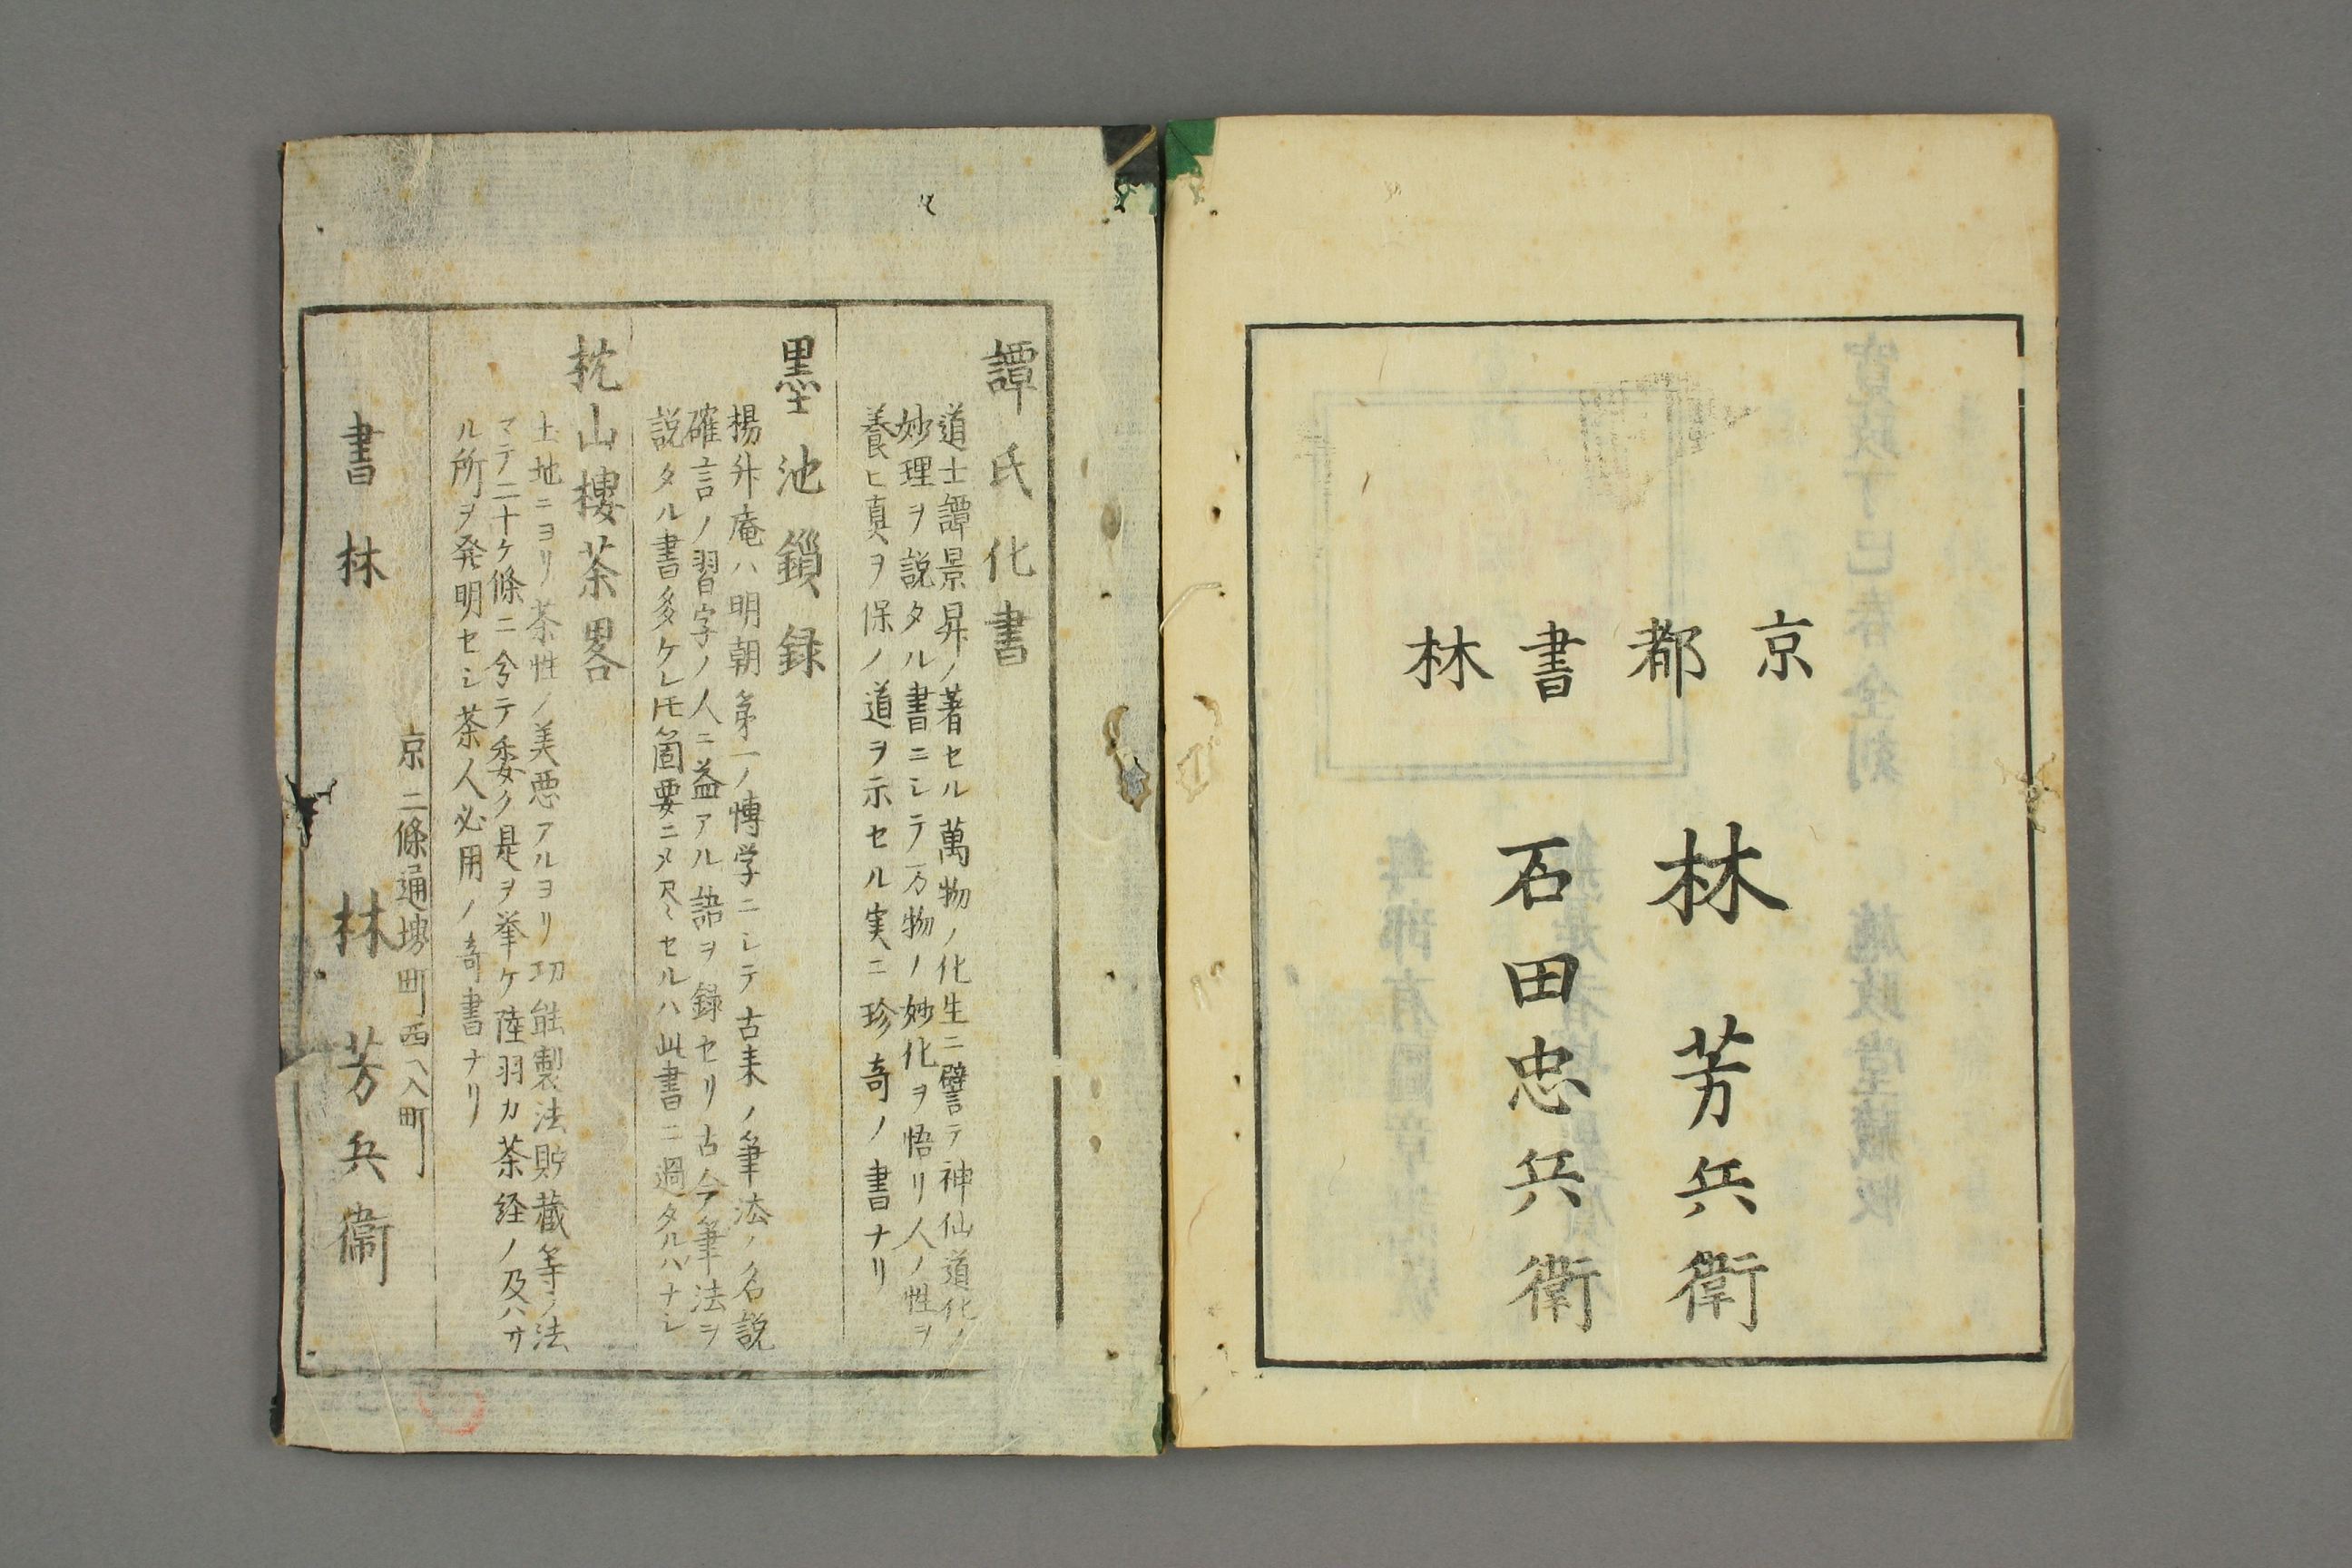 京都書林
林芳兵衛
石田忠兵衛
譚氏化書
道士譚景昇ノ著セル萬物ノ化生ニ譬テ神仙道化ノ
妙理ヲ説タル書ニシテ万物ノ妙化ヲ悟リ人ノ性ヲ
養ヒ真ヲ保ノ道ヲ示セル実ニ珍奇ノ書ナリ
墨池鎻録
楊升庵ハ明朝第一ノ慱学ニシテ古来ノ筆法ノ名説
確言ノ習字ノ人ニ益アル語ヲ録セリ古今筆法ヲ
説タル書多ケレ𪜈箇要ニメ尽セルハ此書ニ過タルハナシ
枕山樓茶畧
土地ニヨリ茶性ノ美悪アルヨリ功能製法貯蔵等ノ法
マテ二十ケ條ニ分テ委ク是ヲ挙ケ陸羽カ茶経ノ及ハサ
ル所ヲ発明セシ茶人必用ノ奇書ナリ
京二條通堺町西ヘ入町
書林 林芳兵衛